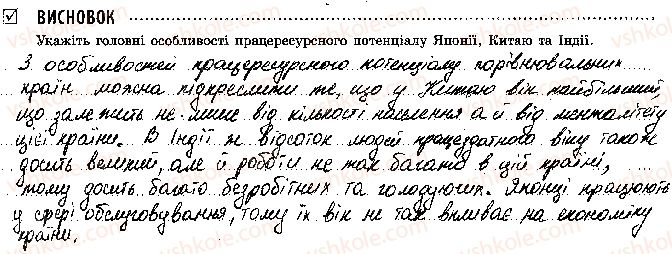 ВИСНОВОК
Укажіть головні особливості працересурсного потенціалу Японії, Китаю та Індії.
З особливостей працересурсного потенціалу порівнювальних
країн можна підкреслити те, що у Китаю він найбільший,
що залежить не лише від кількості населення а й від менталітету
цієї країни. В Індії ж відсоток людей працездатного віку також
досить великий, але й роботи не так багато в цій країні,
тому досить багато безробітних та голодуючих. Японці працюють
у сфері обслуговування, тому їх вік не так впливає на економіку
країни.